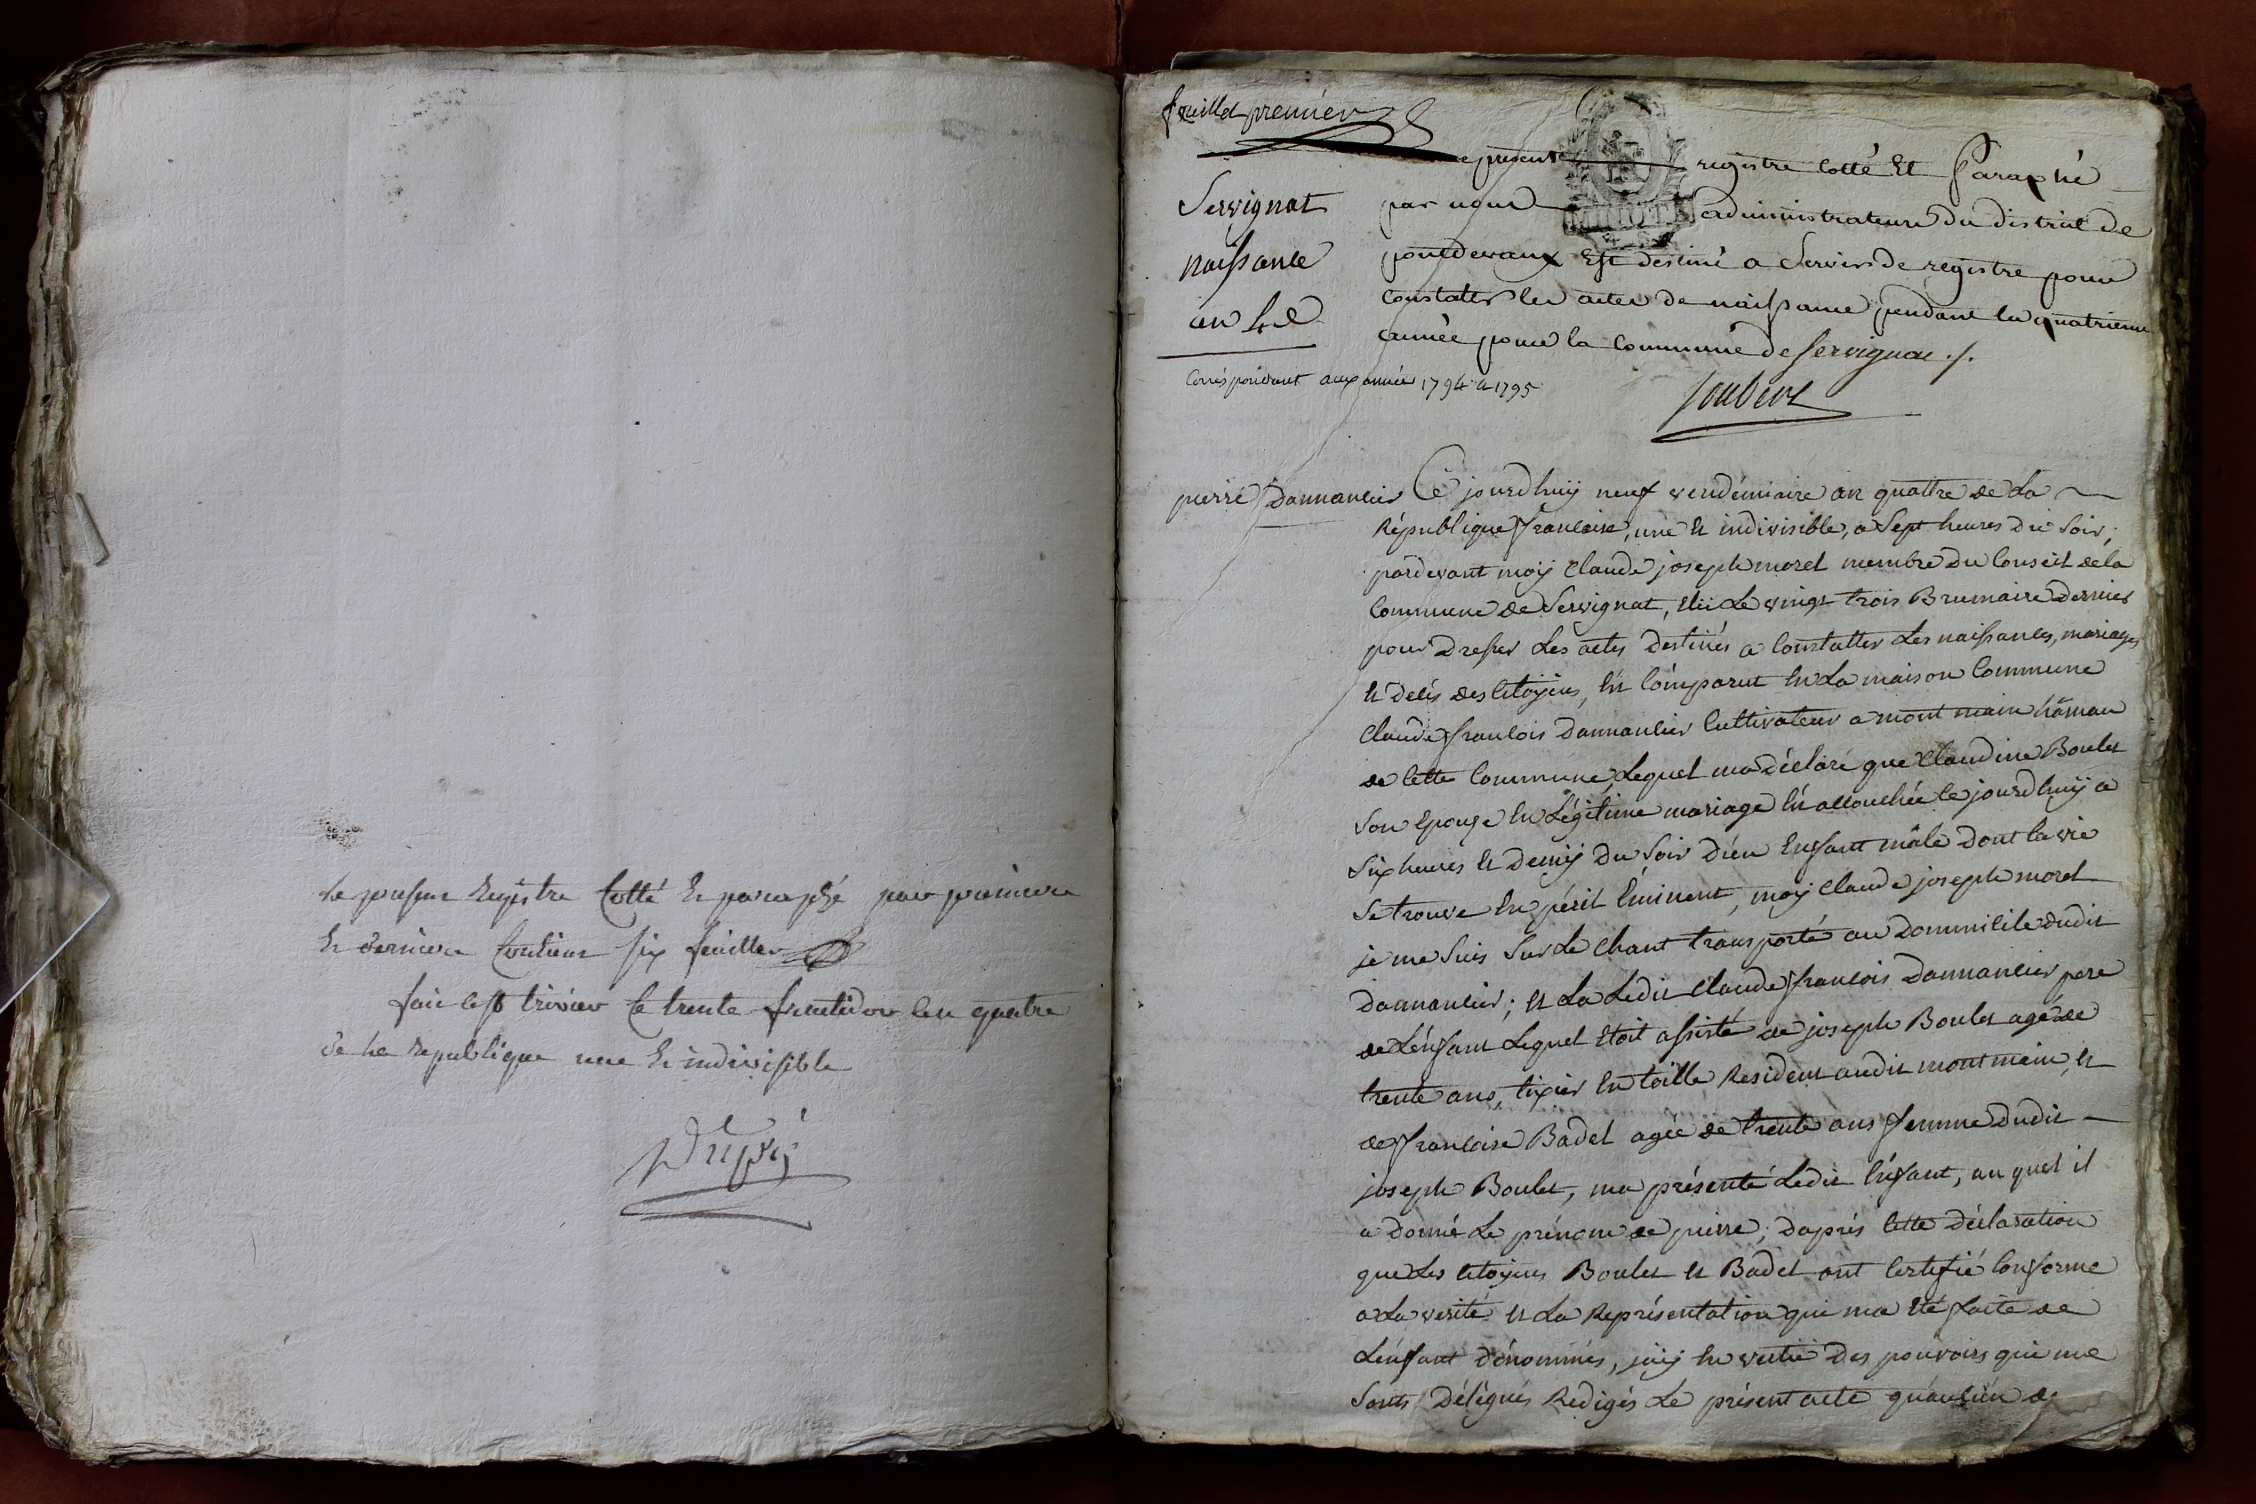 Le present Registre Cotté Et paraphé par premiere
Et derniere Contient six feuillets
fait à St trivier Ce trente fructidor l'an quatre
de la Republique une Et indivisible
feuillet premier
Servignat
naissance
an 4e
Correspondant aux années 1794 a 1795
Le present registre cotté Et Paraphé
par nous administrateurs du district de
pontdevaux Est destiné a Servir de registre pour
Constater les actes de naissance pendant la quatrieme
année pour la Commune de Servignat ./.
Joubert
pierre Dannancier
Ce jourdhuÿ neuf vendémiaire an quattre de La
République francoise, une Et indivisible, a Sept heures du Soir,
pardevant moÿ Claude joseph morel membre du Conseil de la
Commune de Servignat, Elu Le vingt trois Brumaire Dernier
pour Dresser Les actes Destinés a Constatter Les naissances, mariages
Et décés des Citoÿens, Est Comparut En La maison Commune
Claude francois Dannancier Cultivateur a mont main hâmau
de Cette Commune, Lequel ma déclaré que Claudine Boulet
Son Epouse En Légitime mariage Est accouchée Ce jourdhuÿ a
Six heures Et Demÿ Du Soir D'un Enfant mâle dont la vie
Se trouve En péril Eminent, moÿ Claude joseph morel
je me Suis Sur Le Chant transporté au Dommicile dudit
Dannancier; Et La Ledit Claude francois Dannancier pere
de L'énfant Lequel Etoit assisté de joseph Boulet agé de
trente ans, tixier En toille Resident audit mont main, Et
de francoise Badel agée de trente ans femme Dudit
joseph Boulet, ma présenté Ledit Enfant, au quel il
a Donné Le prénom de pierre; Daprés Cette Déclaration
que Les Citoÿens Boulet Et Badel ont Certifié Conforme
a La verité Et La Représentation qui ma Eté faite de
L'énfant Dénommés, jaÿ En vertu Des pouvoirs qui me
Sonts Délégués Redigés Le présent acte